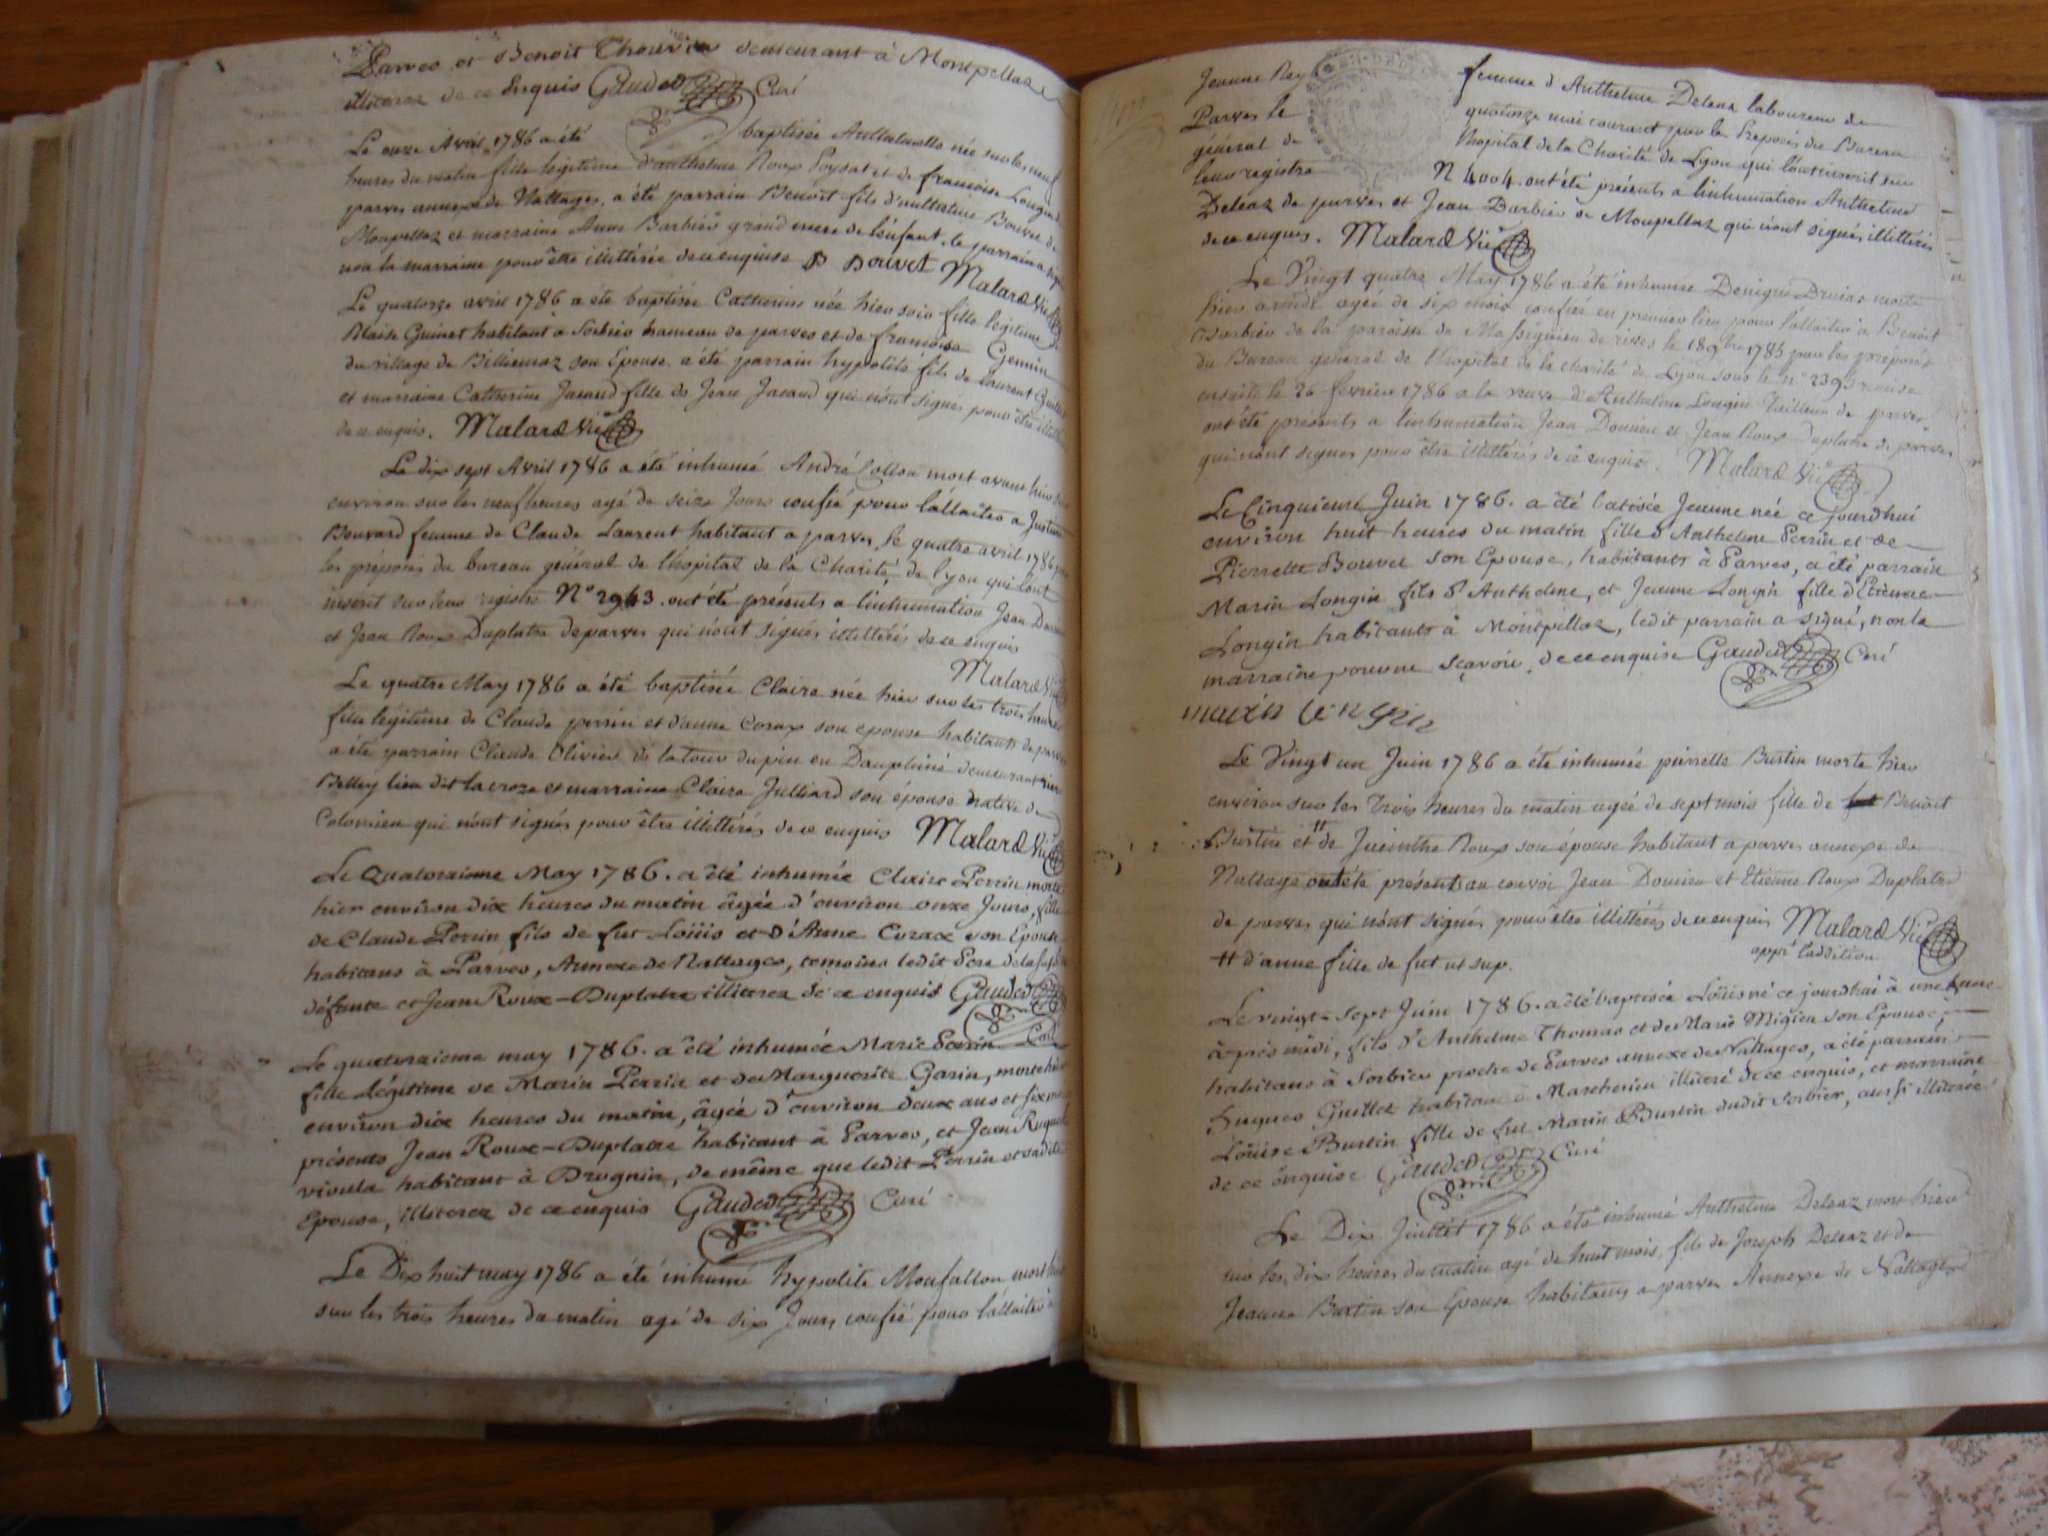 Parves et Benoit Thouvier demeurant à Montpellaz
illiterez de ce Enquis Gaudet Curé
Le onze Avril 1786 a été baptisée née sur les neuf
heures du matin fille légitime d'anthelme Roux Poysat et de françoise Longin
parves annexe de Nattages, a été parrain Benoit fils d'anthelme Bouvet de
Monpellaz et marraine Anne Barbier grand mere de l'enfant, le parrain a signé
non la marraine pour être illittérée de ce enquise B Bouvet Malard Vic
Le quatorze avril 1786 a été baptisée Catherine née hier soir fille légitime de
Blaise Guinet habitant à Sorbier hameau de parves et de françoise Genin
du village de Billiemaz son Epouse a été parrain hypolite fils de laurent Guillet
et marraine Catherine Jacaud fille de Jean Jacaud qui n'ont signés pour être illitt
de ce enquis. Malard Vic
Le dix sept Avril 1786 a été inhumé André Collon mort avant hier
environ sur les neuf heures agé de seize Jours confié pour l'allaiter a Justine
Bouvard femme de Claude Laurent habitant a parves le quatre avril 1786 par
les préposés du bureau général de l'hopital de la Charité de lyon qui l'ont
inscrit sur leur registre N° 2943. ont été présents a l'inhumation Jean
et Jean Roux Duplatre de parves qui n'ont signés illittérés de ce enquis
Malard Vic
Le quatre May 1786 a été baptisée Claire née hier sur les trois heures
fille légitime de Claude perrin et d'anne Corax son epouse habitants de parves
a été parrain Claude Olivier de la tour du pin en Dauphiné demeurant
Belley lieu dit la croze et marraine Claire Julliard son épouse native de
Colomieu qui n'ont signés pour être illittérés de ce enquis Malard Vic
Le Quatorzieme May 1786. a été inhumée Claire Perrin morte
hier environ dix heures du matin âgée d'environ onze Jours, fille
de Claude Perrin fils de fut Loüis et d'Anne Corax son Epouse
habitans à Parves, Annexe de Nattages, temoins ledit Pere de la susdite
défunte et Jean Roux-Duplatre illiterez de ce enquis Gaudet
Curé
Le quatorzieme may 1786. a été inhumée Marie Perrin
fille Légitime de Marin Perrin et de Marguerite Garin, morte hier
environ dix heures du matin, âgée d'environ deux ans et six mois
présents Jean Roux-Duplatre habitant à Parves, et Jean
habitant à Brognin, de même que ledit Perrin et sadite
Epouse, illiterez de ce enquis Gaudet Curé
Le Dix huit may 1786 a été inhumé hypolite Monfallon mort hier
sur les trois heures du matin agé de six Jours confié pour l'allaiter à
Jeanne Rey femme d'Anthelme Deleaz laboureur de
Parves le quatorze mai courant par les Préposés du Bureau
général de l'hopital de la Charité de Lyon qui l'ont inscrit sur
leur registre N 4004. ont été présents a l'inhumation Anthelme
Deleaz de parves et Jean Barbier de Monpellaz qui n'ont signés illittérés
de ce enquis. Malard Vic
Le Vingt quatre May 1786 a été inhumée Benigne Druiar morte
hier a midi agée de six mois confiée en premier lieu pour l'allaiter a Benoit
Barbier de la paroisse de Massignieu de rives le 18 9bre 1785 par les preposés
du Bureau general de l'hopital de la charité de Lyon sous le n° 2393 remise
ensuite le 26 fevrier 1786 a la veuve d'Anthelme Longin Tailleur de parves
ont été présents a l'inhumation Jean Domieu et Jean Roux Duplatre de parves
qui n'ont signés pour être illittérés de ce enquis. Malard Vic
Le Cinquieme Juin 1786. a été batisée Jeanne née ce jourdhui
environ huit heures du matin fille d'Anthelme Perrin et de
Pierrette Bouvet son Epouse, habitants à Parves, a été parrain
Marin Longin fils d'Anthelme, et Jeanne Longin fille d'Etienne
Longin habitants à Montpellaz, ledit parrain a signé, non la
marraine pour ne sçavoir, de ce enquise Gaudet Curé
marin longin
Le Vingt un Juin 1786 a été inhumée pierrette Burtin morte hier
environ sur les trois heures du matin agée de sept mois fille de Benoit
Burtin et # de Jacinthe Roux son épouse habitant a parves annexe de
Nattages ont été présents au convoi Jean Domieu et Etienne Roux Duplatre
de parves qui n'ont signés pour être illittérés de ce enquis Malard Vic
# d'anne fille de fut ut sup. appr l'addition
Le vingt-sept Juin 1786. a été baptisé Loüis né ce jourdhui à une heure
après midi, fils d'Anthelme Thomas et de Marie Migieu son Epouse,
habitans à Sorbier proche de Parves annexe de Nattages, a été parrain
hugues Guillet habitant à Marcherieu illiteré de ce enquis, et marraine
Loüise Burtin fille de fut Marin Burtin dudit Sorbier, aussi illiterée
de ce enquise Gaudet Curé
Le Dix Juillet 1786 a été inhumé Anthelme Deleaz mort hier
sur les dix heures du matin agé de huit mois, fils de Joseph Deleaz et de
Jeanne Burtin son Epouse habitants a parves Annexe de Nattages